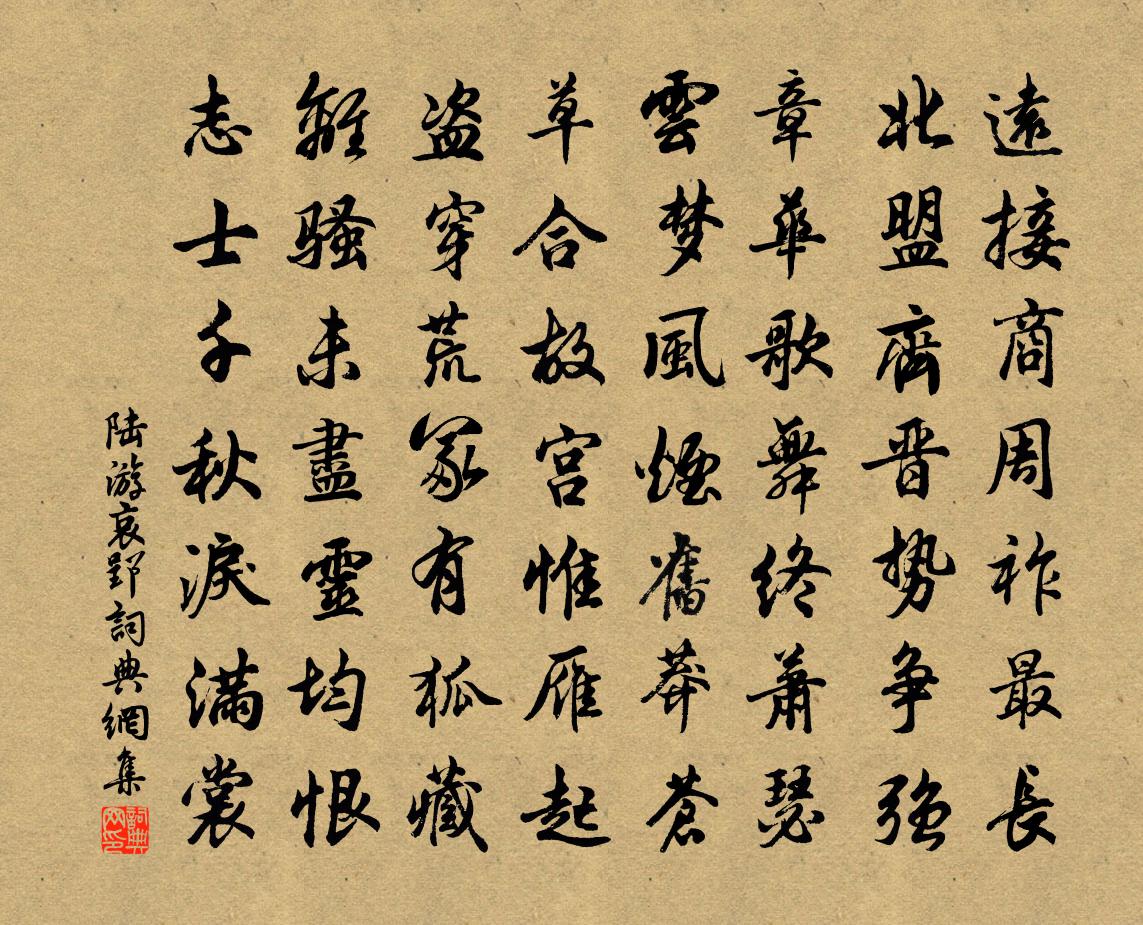 遠接商周祚最長
北盟齊晋勢争强
章華歌舞終蕭瑟
雲梦風煙舊莽蒼
草合故宫惟雁起
盗穿荒冢有狐藏
離騷未盡靈均恨
志士千秋淚满裳
陆游哀郢詞典網集
詞典网印